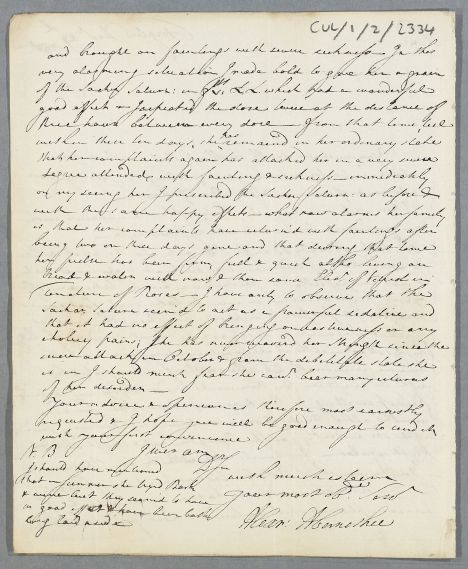 CUL/1/2/2334
and brought on faintings with severe sickness. In this
very alarming situation I made bold to give her a grain
of the Sacch: Saturn: in which had a wonderful
good effect & I repeated the dose twice at the distance of
three hours between every dose. From that time, till
within these ten days, she has remained in her ordinary state
that her complaints again has attacked her in a very severe
degree attended with fainting & sickness immediately
on my seeing her I prescribed the Sacch: Saturn: as before &
with the same happy effects what now alarms her family
is that her complaints have returned with faintings after
being two or three days gone and that during that time
her pulse has been full & quick altho' living on
Bread & water with now & then some of in
Tincture of Roses. I have only to observe that the
Sacch: Saturn seem'd to act as a powerful sedative and
that it had no effect of bringing on costiveness or any
cholicky pains; She has never recovered her strength since the
severe attack in October & from the debilitated state she
is in I should much fear she cant bear many returns
of her disorder
Your advice & opinion is therefore most earnestly
requested & I hope you will be good enough to send it
with your first convenience
I ever am
with much esteem
Your most ob: Serv
Alexr: Abernethie
N. B
I should have mentioned
that she used Bark
& wine but they seemed to have
no good effect & have been both
long laid aside